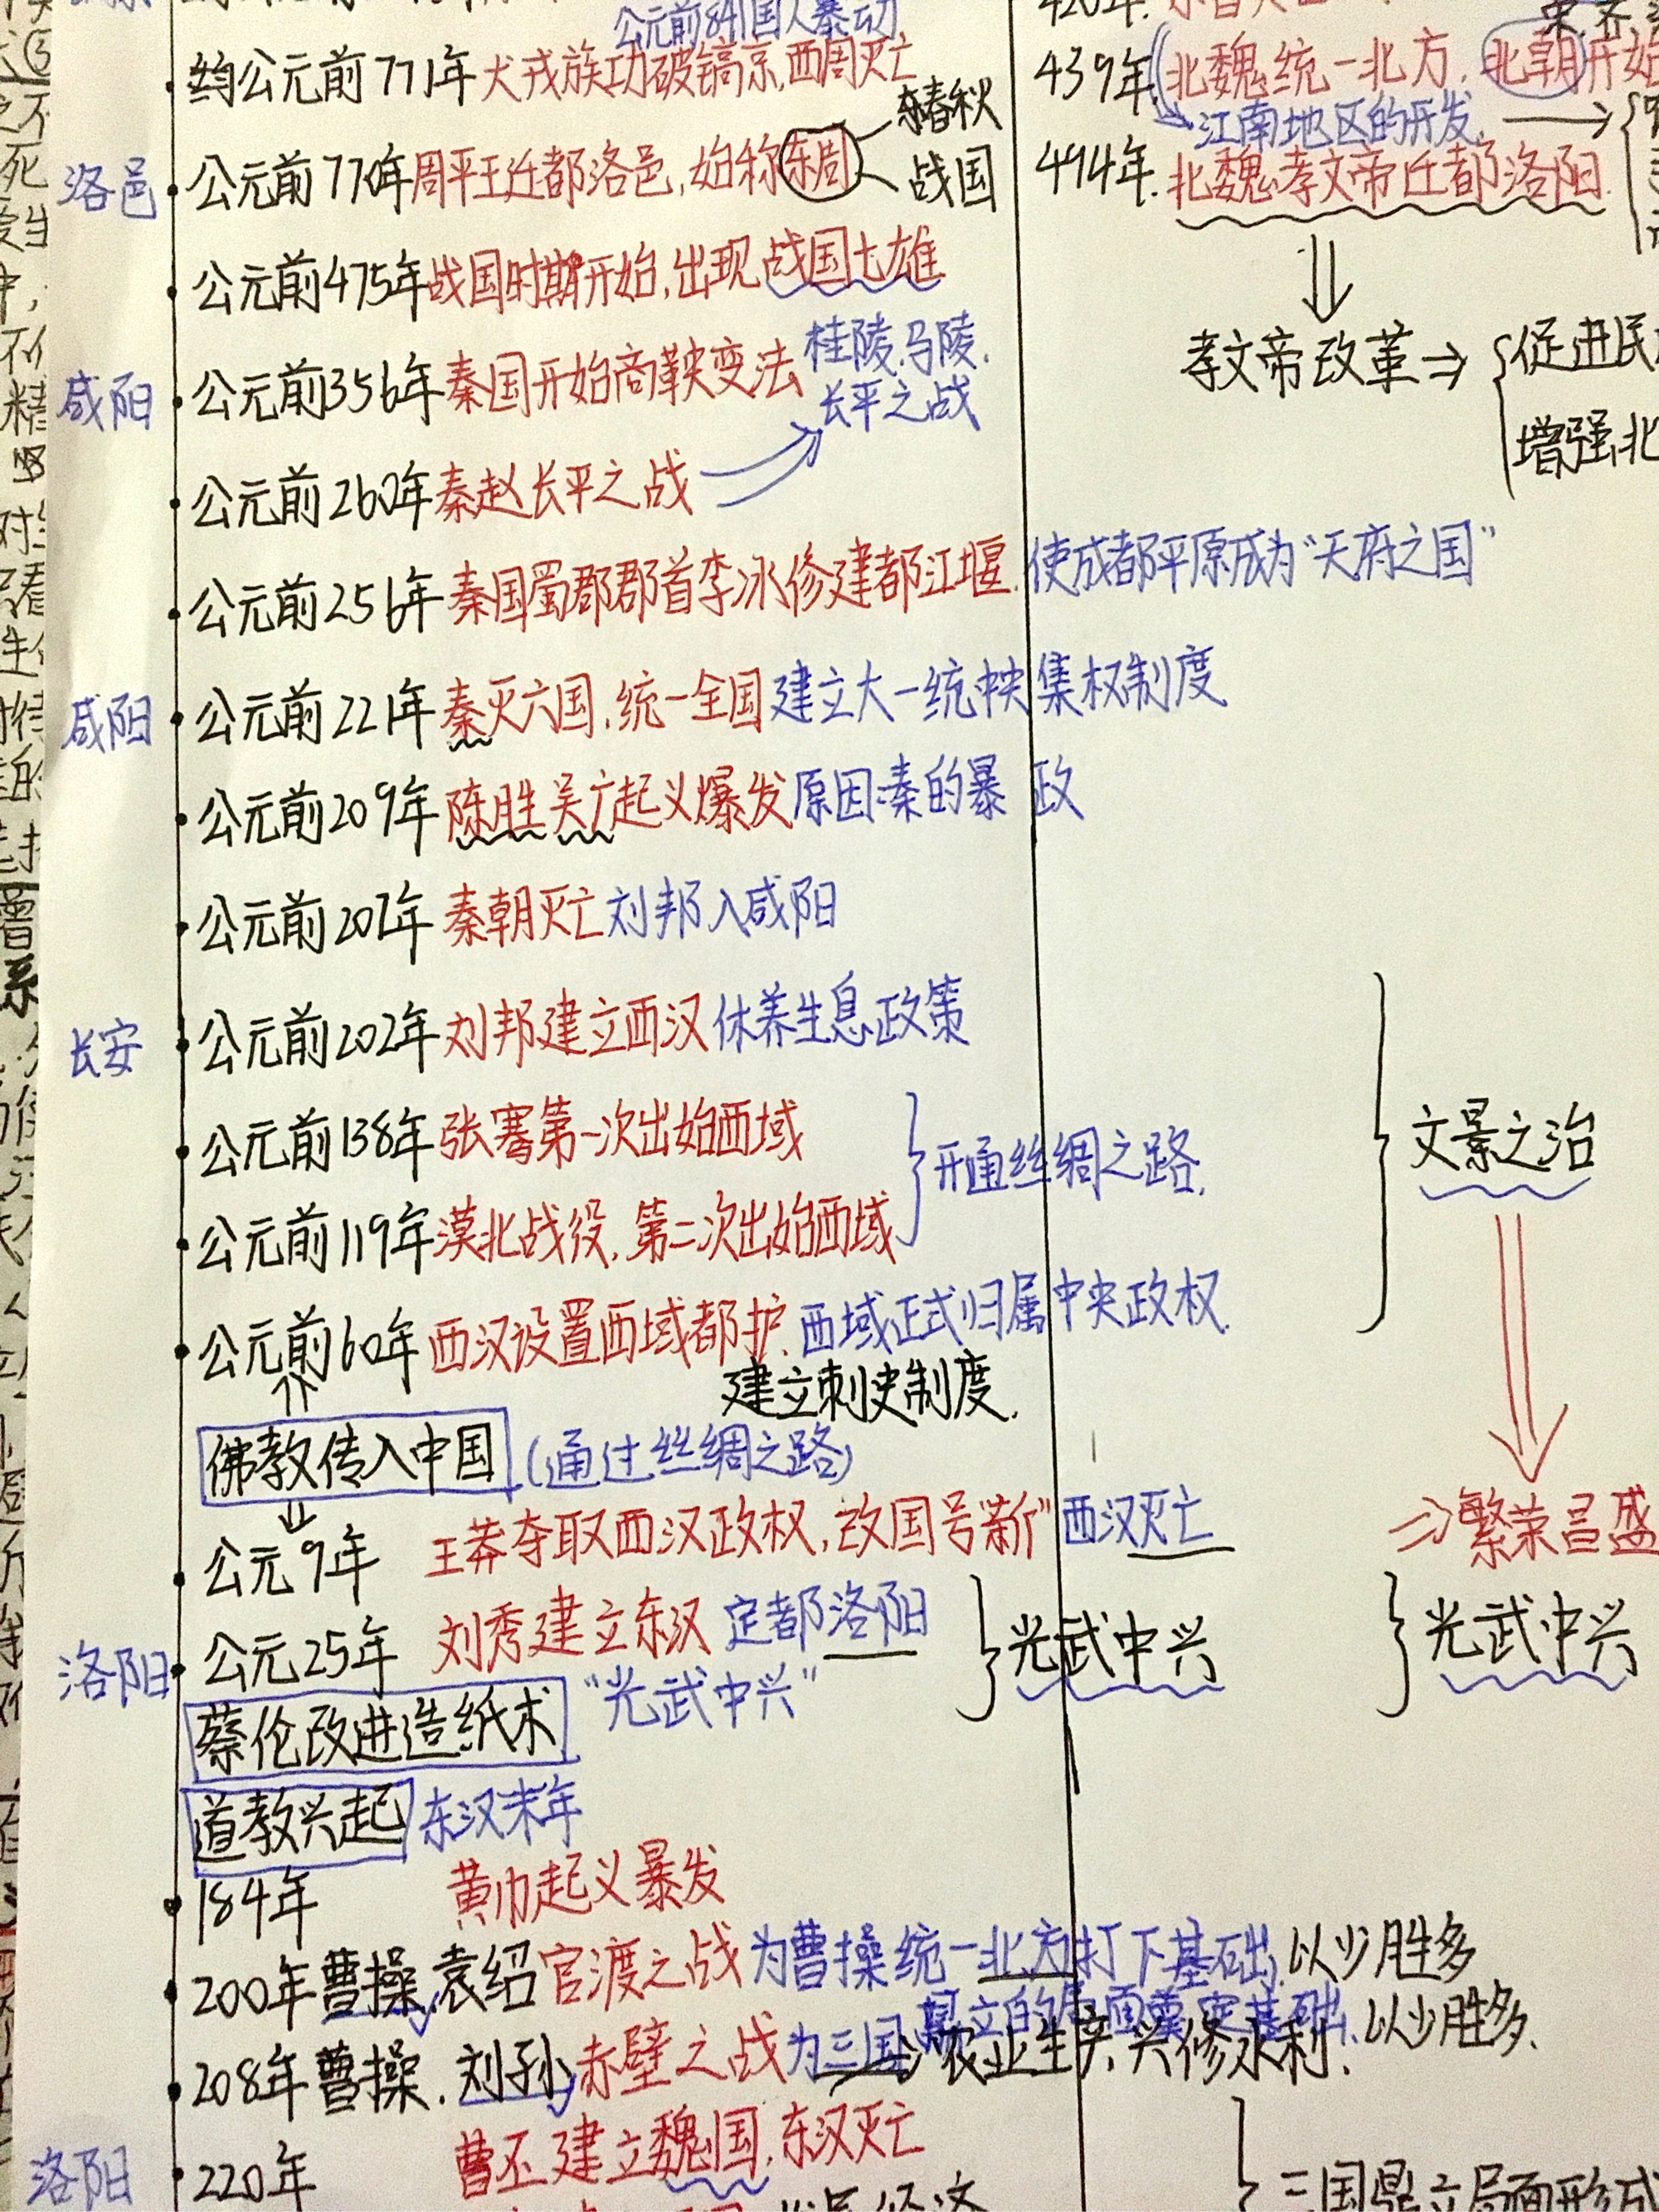 公元前841国人暴动
约公元前771年 犬戎族功破镐京,西周灭亡
洛邑 公元前770年周平王迁都洛邑,始称东周
春秋
战国
公元前475年战国时期开始,出现战国七雄
咸阳 公元前356年秦国开始商鞅变法
桂陵.马陵.
长平之战
公元前260年秦赵长平之战
公元前256年秦国蜀郡郡首李冰修建都江堰.使成都平原成为“天府之国”
咸阳 公元前221年秦灭六国,统一全国 建立大一统中央集权制度
公元前209年 陈胜吴广起义爆发 原因:秦的暴政
公元前207年 秦朝灭亡 刘邦入咸阳
长安 公元前202年 刘邦建立西汉 休养生息政策
公元前138年 张骞第一次出始西域
开通丝绸之路.
公元前119年漠北战役,第二次出始西域
公元前60年 西汉设置西域都护.西域正式归属中央政权.
建立刺史制度.
佛教传入中国 (通过丝绸之路)
公元9年 王莽夺取西汉政权,改国号“新” 西汉灭亡
洛阳 公元25年 刘秀建立东汉 定都洛阳
“光武中兴”
光武中兴
蔡伦改进造纸术
道教兴起 东汉末年
184年 黄巾起义暴发
200年曹操.袁绍官渡之战 为曹操统一北方打下基础.以少胜多
208年曹操.刘孙赤壁之战为三国鼎立的局面奠定基础.以少胜多.
农业生产,兴修水利.
洛阳 220年 曹丕建立魏国.东汉灭亡
420年.
439年 北魏统一北方.北朝开始
江南地区的开发.
494年.北魏孝文帝迁都洛阳.
孝文帝改革⇒
促进民
增强北
文景之治
⇒繁荣昌盛
光武中兴
三国鼎立局面形成